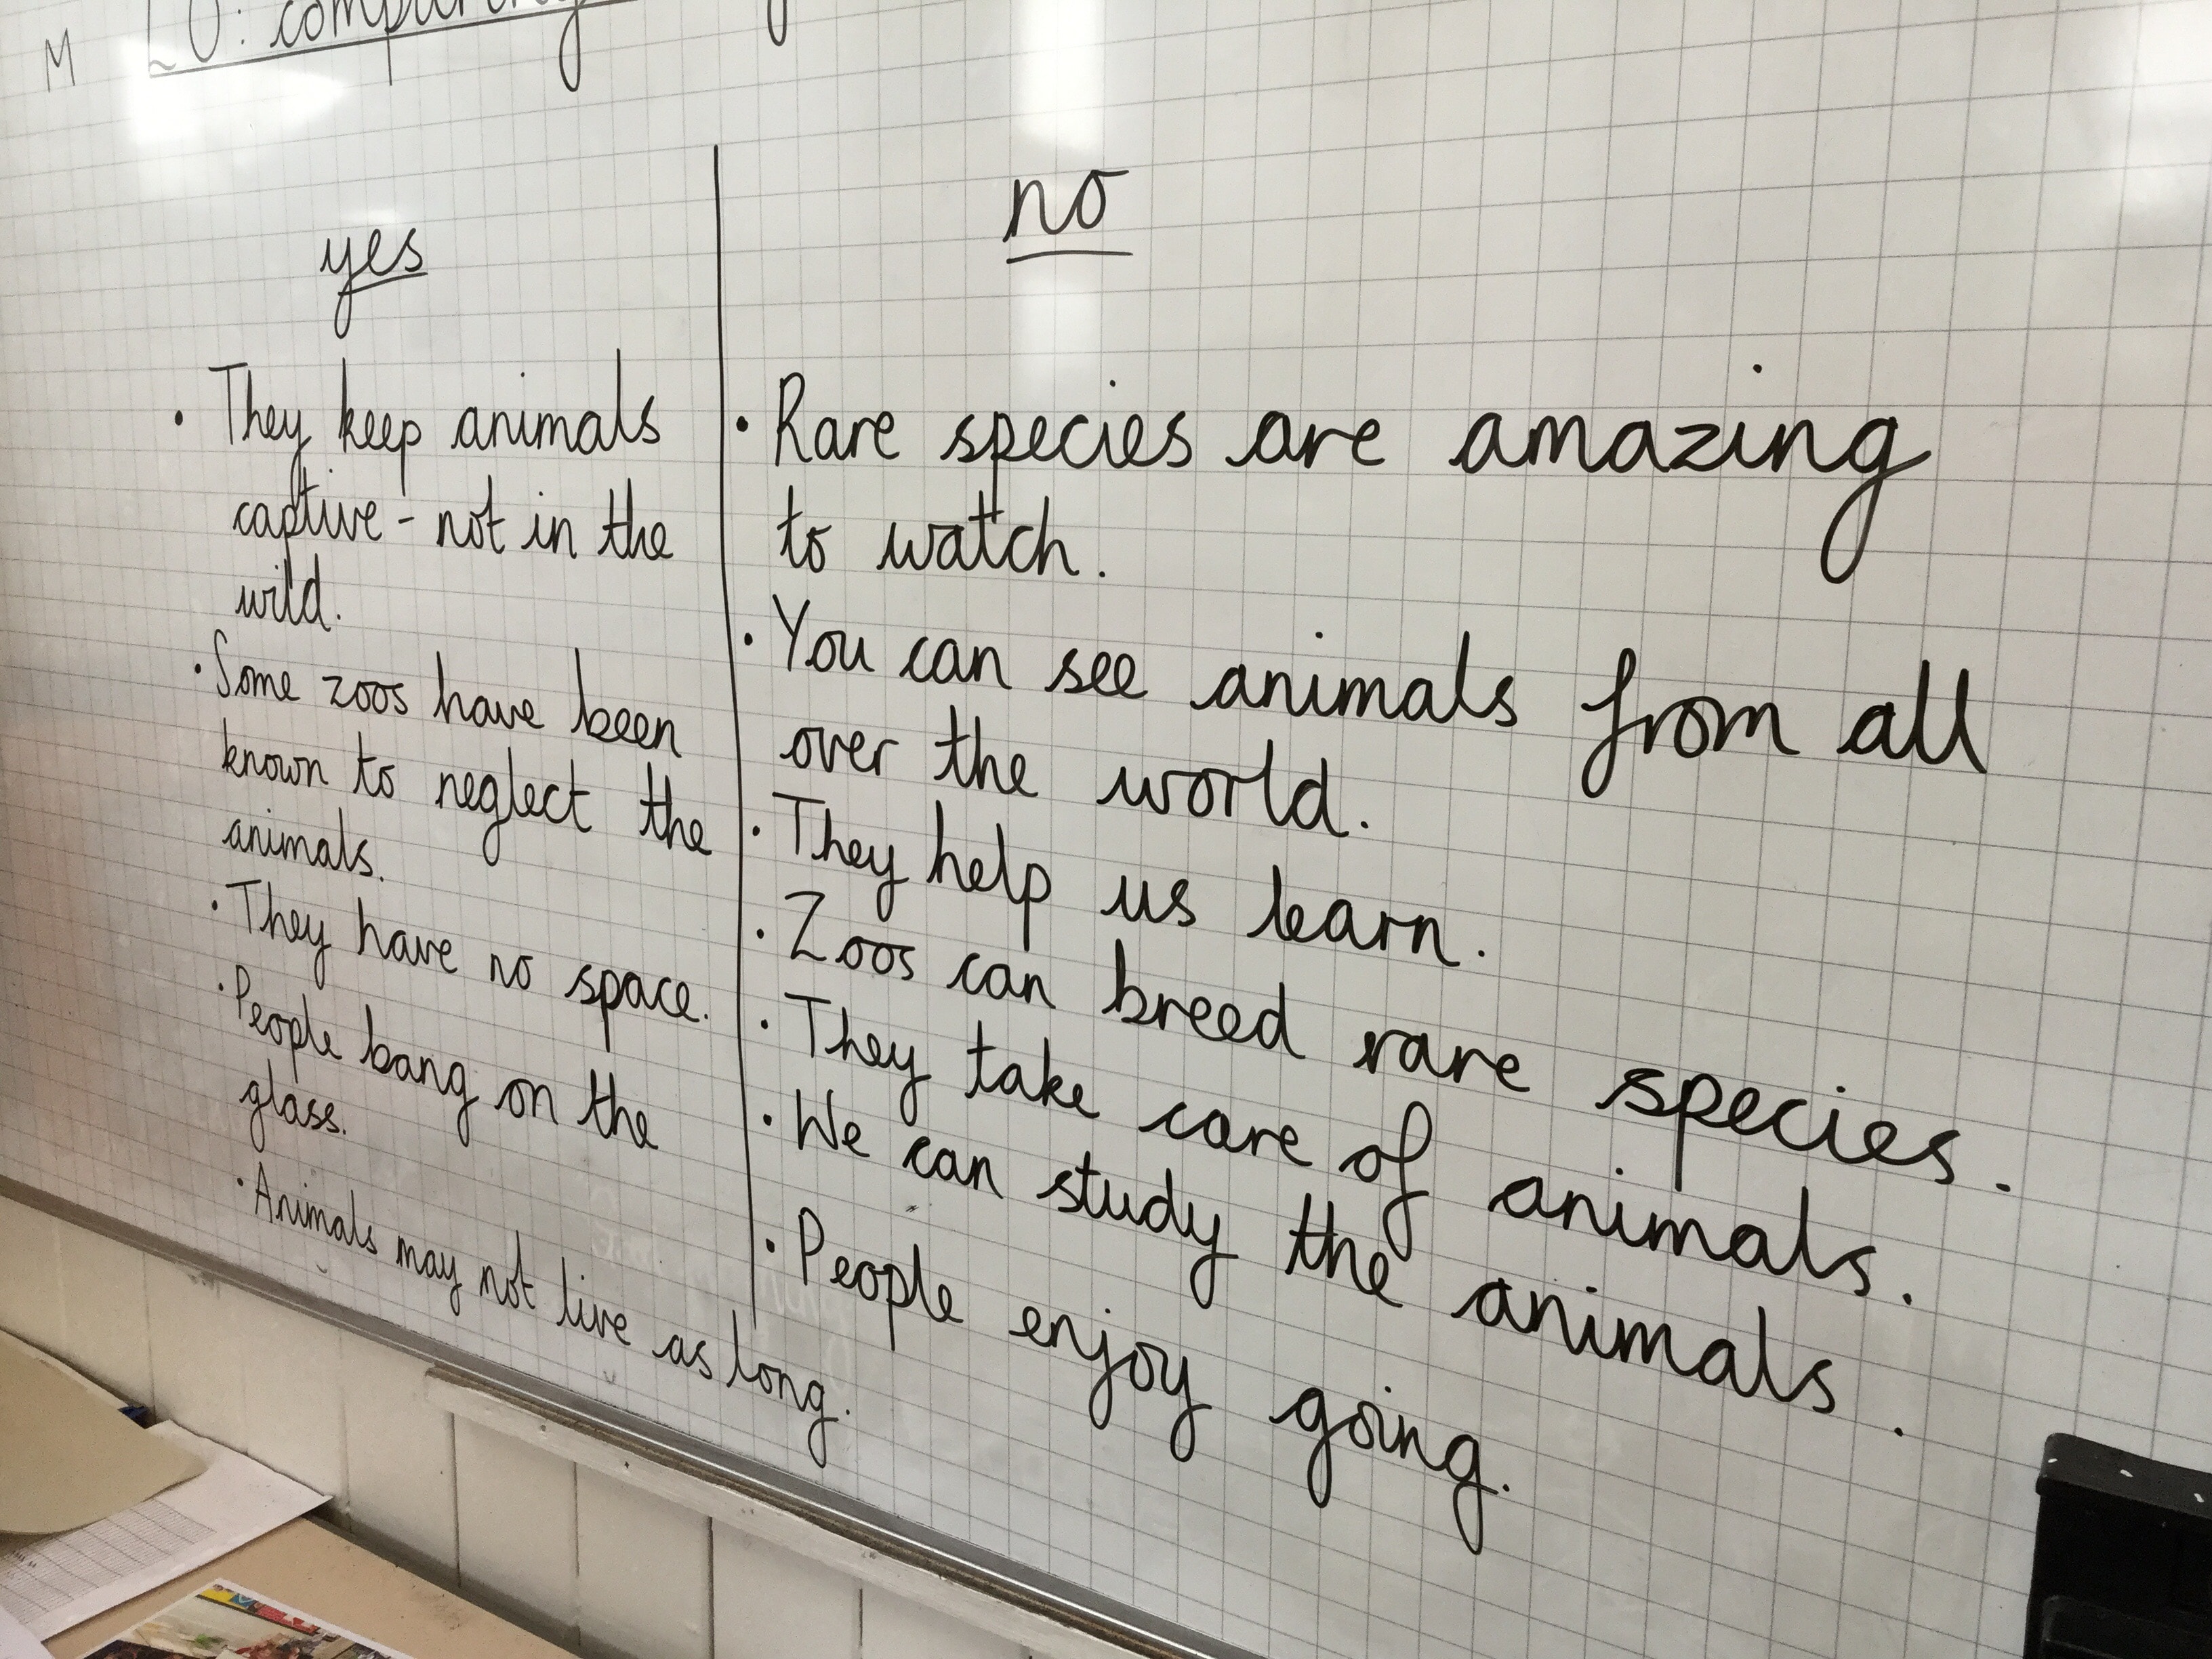 M LO: comparing
yes
• They keep animals
captive - not in the
wild.
• Some zoos have been
known to neglect the
animals.
• They have no space.
• People bang on the
glass.
• Animals may not live as long.
no
• Rare species are amazing
to watch.
• You can see animals from all
over the world.
• They help us learn.
• Zoos can breed rare species.
• They take care of animals.
• We can study the animals.
• People enjoy going.